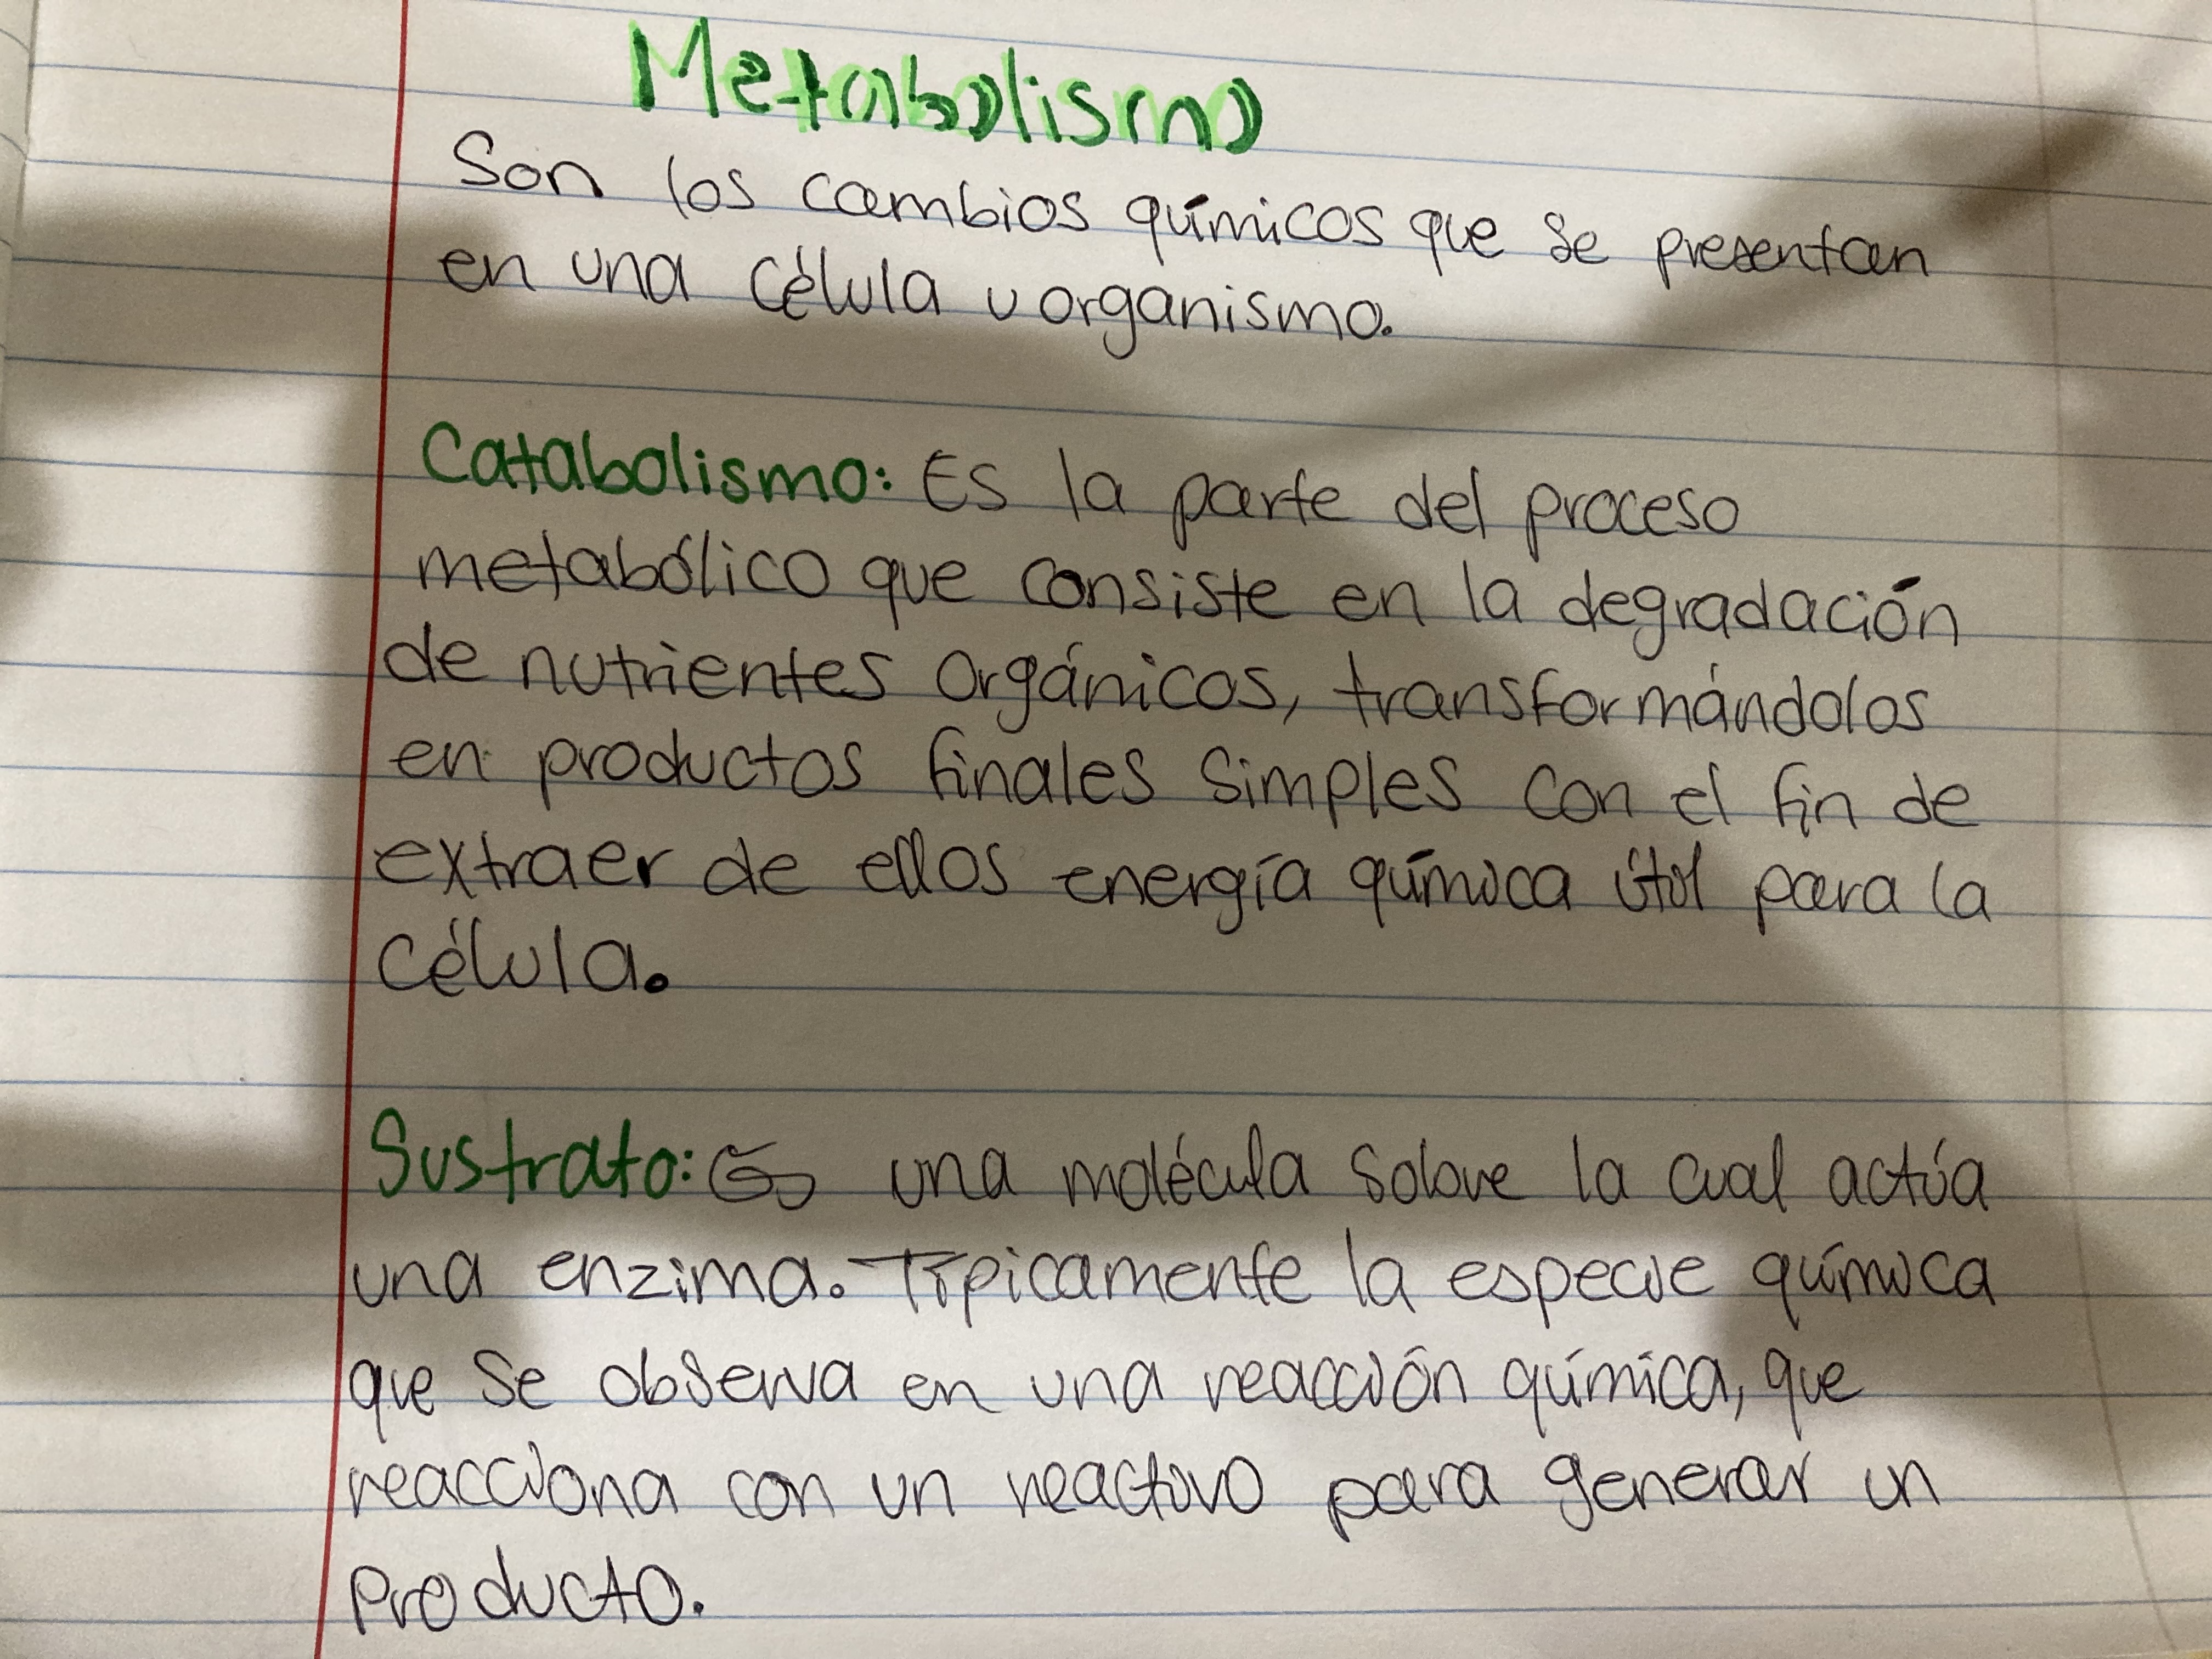 Metabolismo
Son los cambios químicos que se presentan
en una célula u organismo.
Catabolismo: Es la parte del proceso
metabólico que consiste en la degradación
de nutrientes orgánicos, transformándolos
en productos finales simples con el fin de
extraer de ellos energía química útil para la
célula.
Sustrato: Es una molécula sobre la cual actúa
una enzima. Típicamente la especie química
que se observa en una reacción química, que
reacciona con un reactivo para generar un
producto.